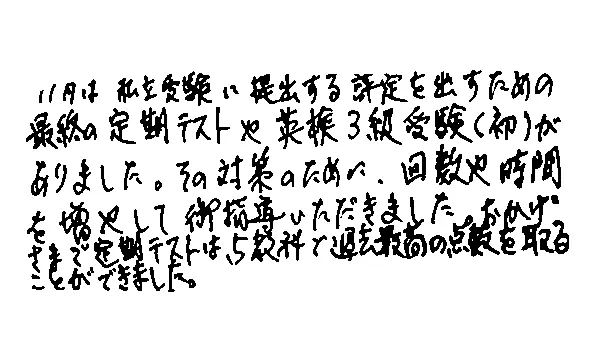 11月は私立受験に提出する評定を出すための
最終の定期テストや英検3級受験(初)が
ありました。その対策のために、回数や時間
を増やして御指導いただきました。おかげ
さまで定期テストは5教科で過去最高の点数を取る
ことができました。